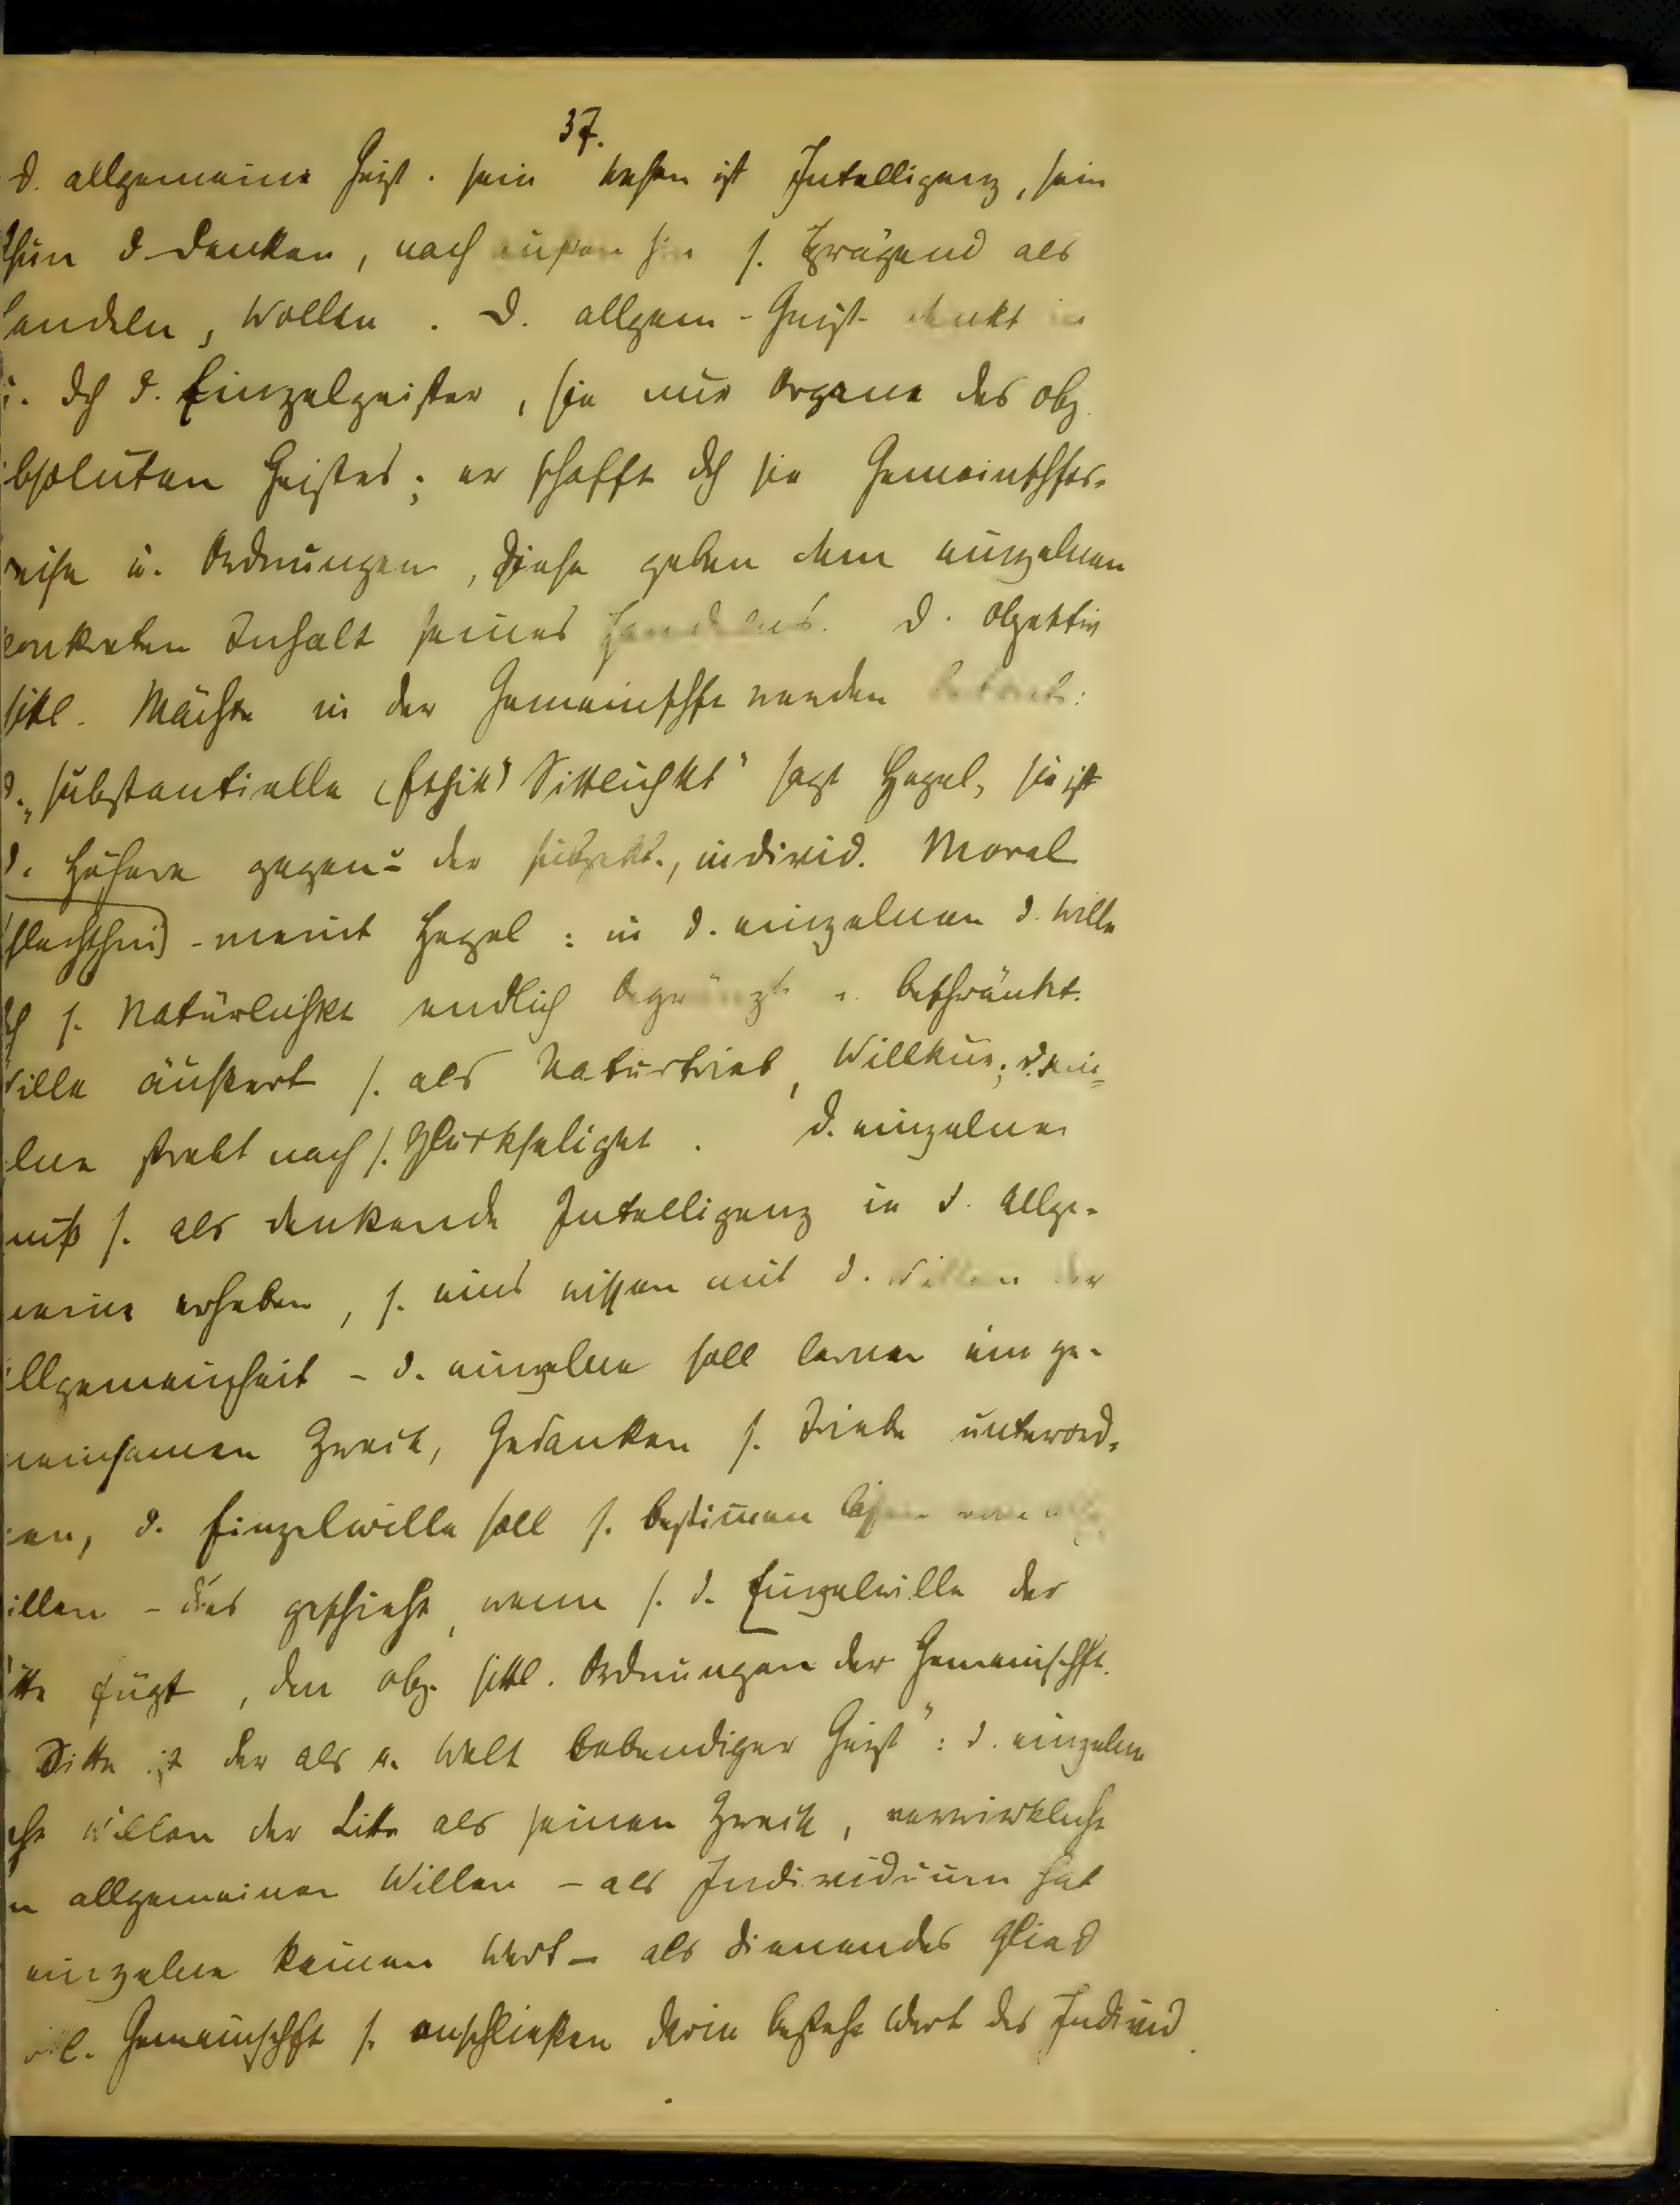 37.
d. allgemeine Geist. sein Wesen ist Intelligenz, sein
thun d. Denken, nach außen hin s. zeigend als
andeln, Wollen. D. allgem. Geist denkt in
u. dch d. Einzelgeister, sie nur Organe des obj.
bsoluten Geistes; er schafft dch sie Gemeinschfts-
reise u. Ordnungen, diese geben dem einzelnen
konkreten Inhalt seines Handelns. D. objektiv
sittl. Mächte in der Gemeinschft werden betont:
d. „substantielle (Ethik) Sittlichkt" sagt Hegel, sie ist
d. Höhere gegenü der subjekt., individ. Moral
schlechthin) - meint Hegel: in d. einzelnen d. Wille
dch s. Natürlichkt endlich begränzt u. beschränkt.
Wille äußert s. als Naturtrieb, Willkür; d. ein=
lne strebt nach s. Glückseligkt. D. einzelne
muß s. als denkende Intelligenz in d. Allge-
meine erheben, s. eins wissen mit d. Willen der
llgemeinheit - d. einzelne soll lernen im ge-
meinsamen Zweck, Gedanken s. Triebe unterord-
nen, d. Einzelwille soll s. bestimen laßen vom allg.
illen - dies geschieht, wenn s. d. Einzelwille der
itte fügt, den obj. sittl. Ordnungen der Gemeinschft.
Sitte ist der als e. Welt lebendiger Geist": d. einzelne
Willen der Sitte als seinen Zweck, verwirklicht
n allgemeinen Willen - als Individuum hat
einzelne keinen Wert - als dienendes Glied
Gemeinschft s. anschließen darin besteht Wert des Individ.